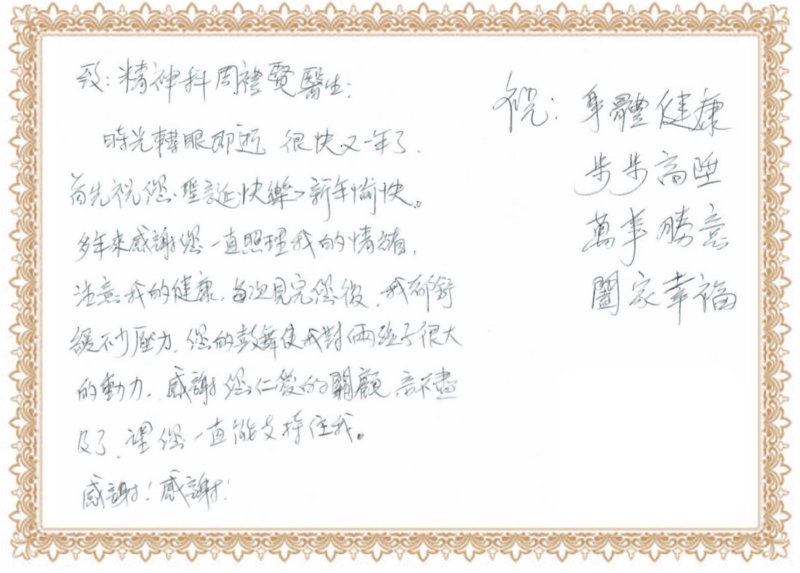 致:精神科周禮賢醫生:
時光轉眼即逝 很快又一年了.
首先祝您:聖誕快樂,新年愉快。
多年來感謝您一直照理我的情緒,
注意我的健康,每次見完您後,我都舒
緩不少壓力,您的鼓舞使我對兩孩子很大
的動力,感謝您仁愛的關顧,言不盡
及了,望您一直能支持住我。
感謝!感謝!
祝:身體健康
步步高陞
萬事勝意
闔家幸福